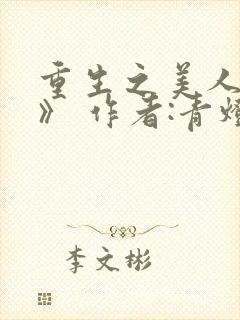 重生之美人
》 作者:青燈
李文彬